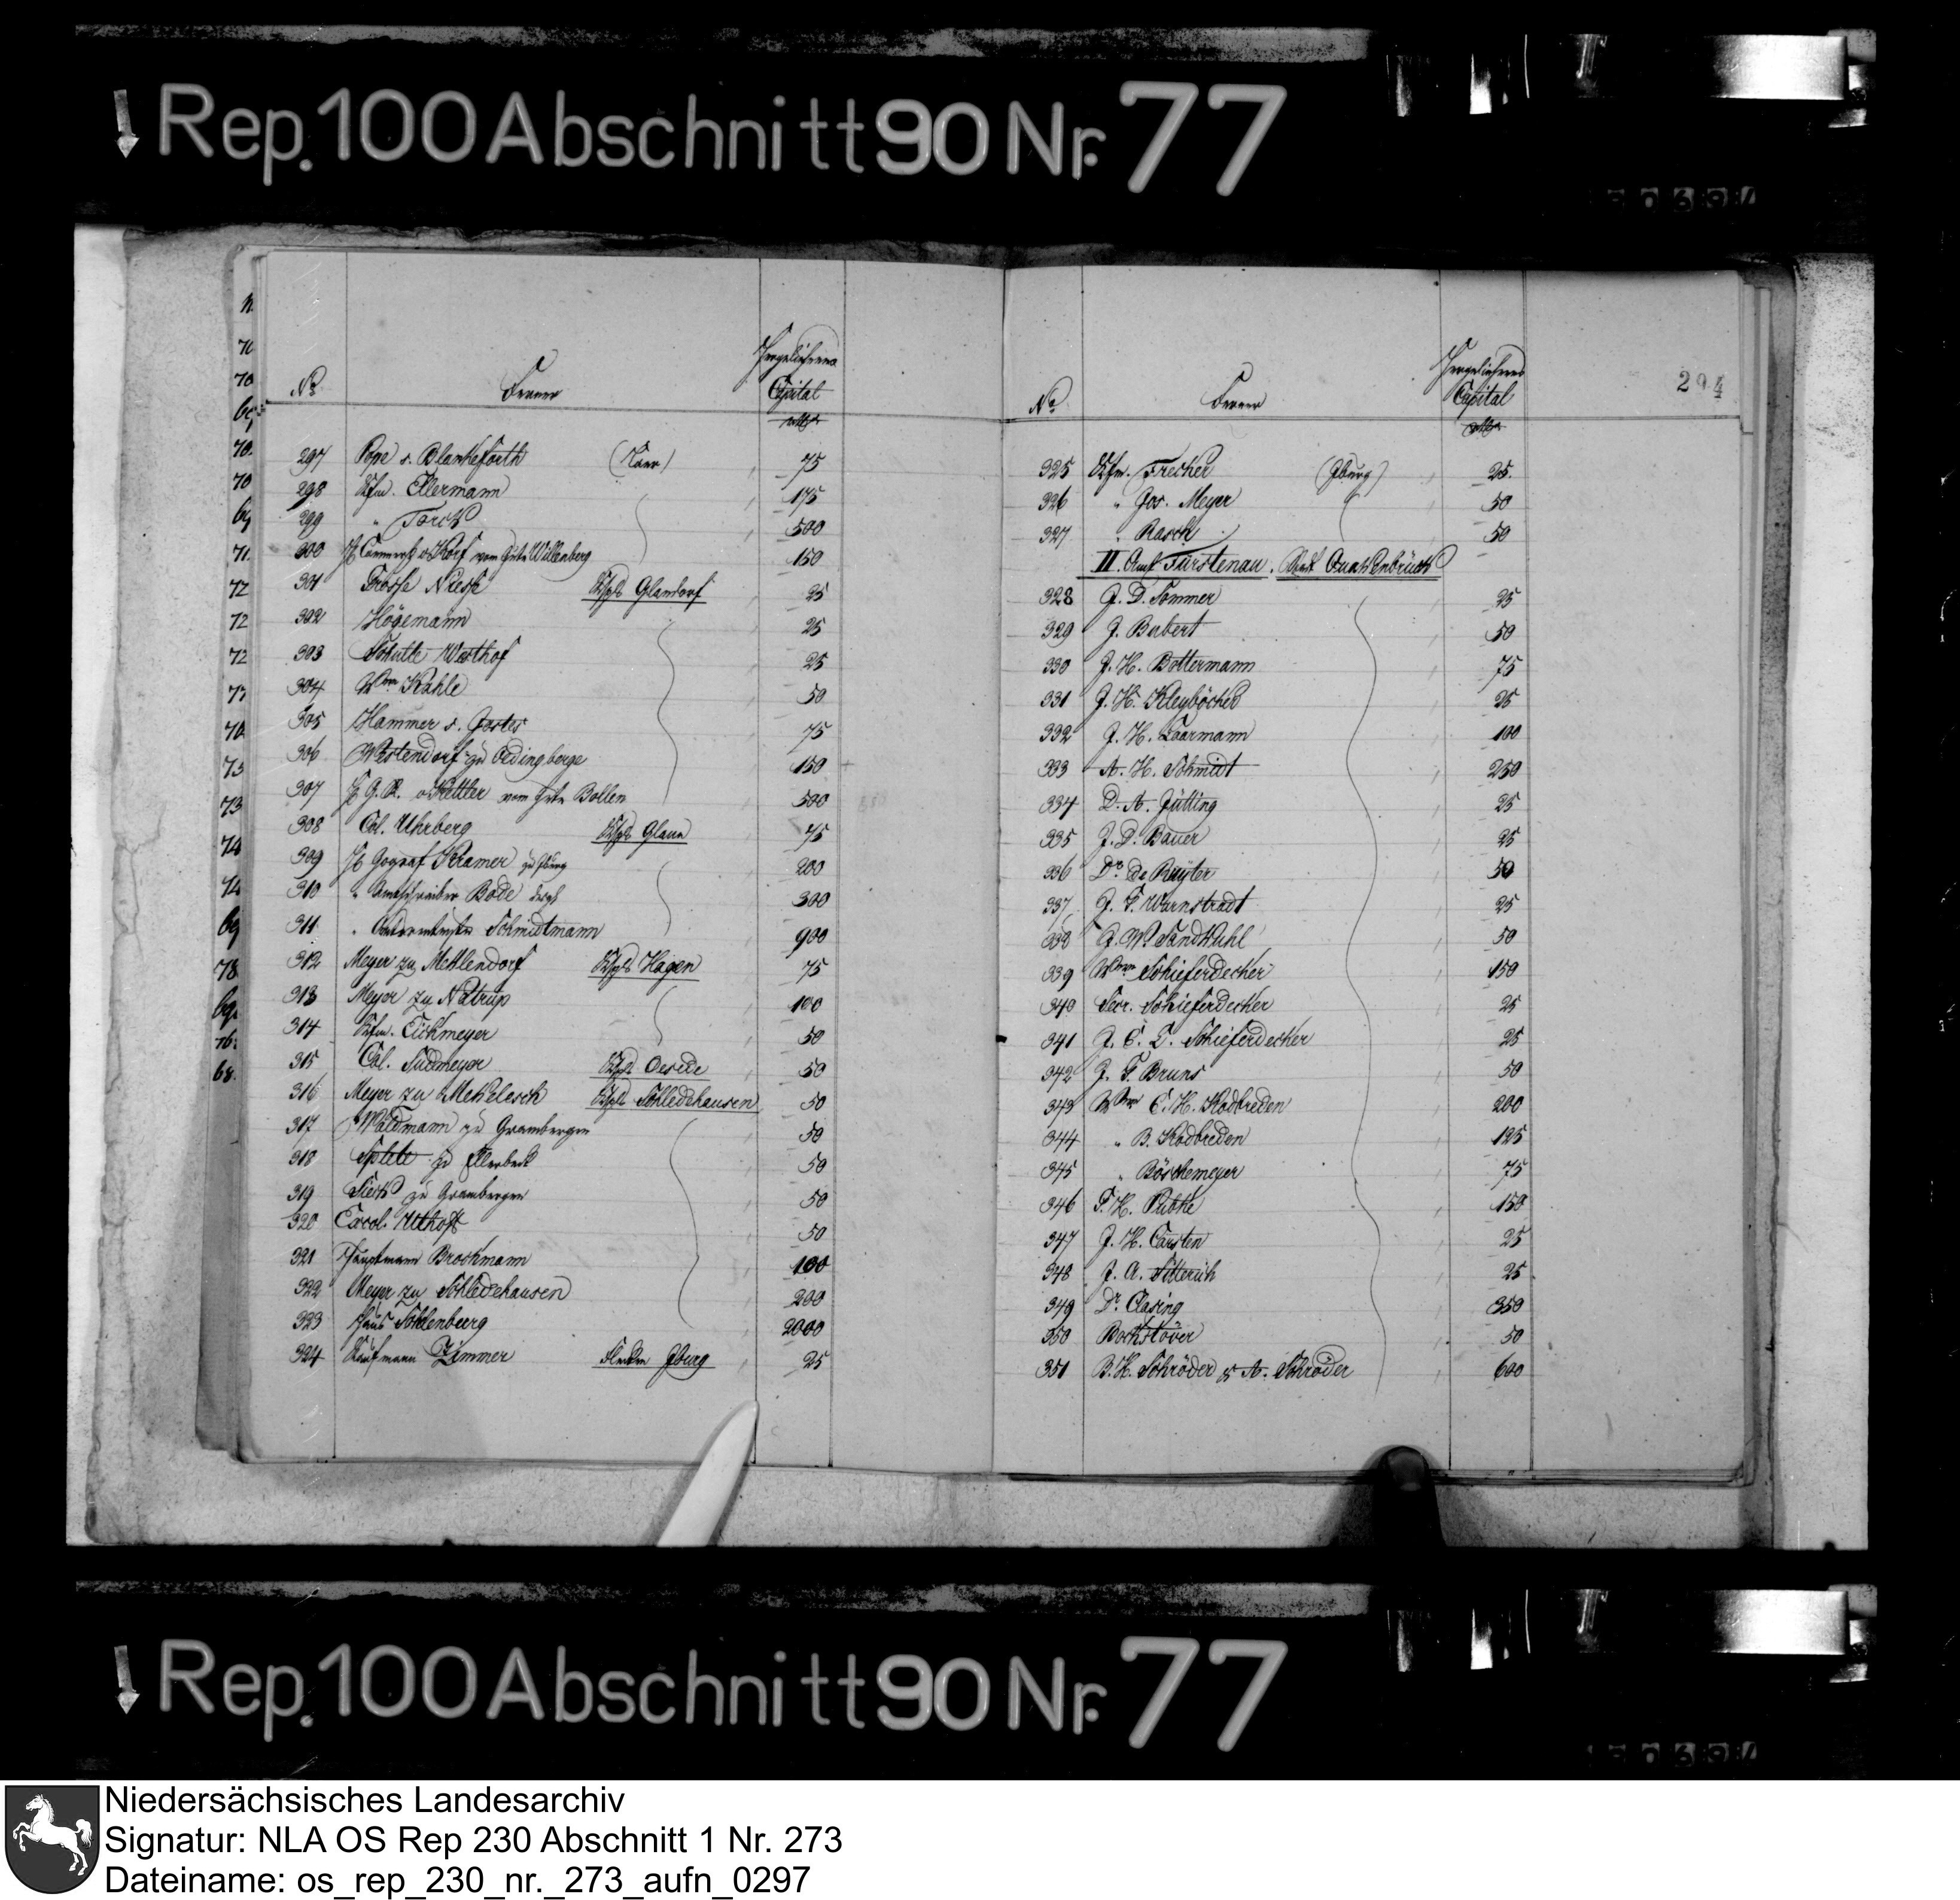 Rep. 100 Abschnitt 90 Nr. 77
294
No
Capital
297 Pope s. Blankeforth 75
298 Kfm. Ellermann 175
299 " Torck 500
300 vom Gute Willenberg 150
301 Grosse Niesse Kspl. Glandorf 25
302 Högemann 25
303 Schulte Westhof 25
304 Wwe Kahle 50
305 Hammer s. Jostes 75
306 Westendorf zu Oedingberge 150
307 v Kettler vom Gute Bollen 500
308 Col. Uhrberg Kspl. Glane 75
309 Gograf Kramer zu Iburg 200
310 " Amtschreiber Bode 300
311 " Schmidtmann 900
312 Meyer zu Mehlendorf Kspl. Hagen 75
313 Meyer zu Natrup 100
314 Kfm. Eickmeyer 50
315 Col. Sudmeyer Kspl. Oesede 50
316 Meyer zu Kspl. Schledehausen 50
317 Waldmann zu Grambergen 50
318 zu Ellerbeck 50
319 Sieck zu Grambergen 50
320 50
321 Hauptmann Brockmann 100
322 Meyer zu Schledehausen 200
323 Haus Schlenburg 2000
324 Kaufmann Zimmer Flecken Iburg 25
No
Capital
325 Kfm. Frecker (Iburg) 25
326 " Jos. Meyer 50
327 " Rasch 50
II. Amt Fürstenau. Stadt Quakenbrück
328 J. D. Sommer 25
329 J. Bubert 50
330 J. H. Bottermann 75
331 J. H. Kleyböcker 25
332 J. H. Laarmann 100
333 A. H. Schmidt 250
334 D. A. Jütting 25
335 J. D. Bauer 25
336 Dr. de Ruyter 50
337 J. F. Warnstradt 25
338 J. W. Sandkuhl 50
339 Wwe Schieferdecker 150
340 Secr. Schieferdecker 25
341 J. C. L. Schieferdecker 25
342 J. F. Bruns 50
343 Wwe C. H. Kodbreden 200
344 " B. Kodbreden 125
345 " Böschemeyer 75
346 F. H. 150
347 J. H. Carsten 25
348 J. A. 25
349 Dr. Clasing 350
350 Bockstöver 50
351 B. H. Schröder & A. Schröder 600
Rep. 100 Abschnitt 90 Nr. 77
Niedersächsisches Landesarchiv
Signatur: NLA OS Rep 230 Abschnitt 1 Nr. 273
Dateiname: os_rep_230_nr._273_aufn_0297